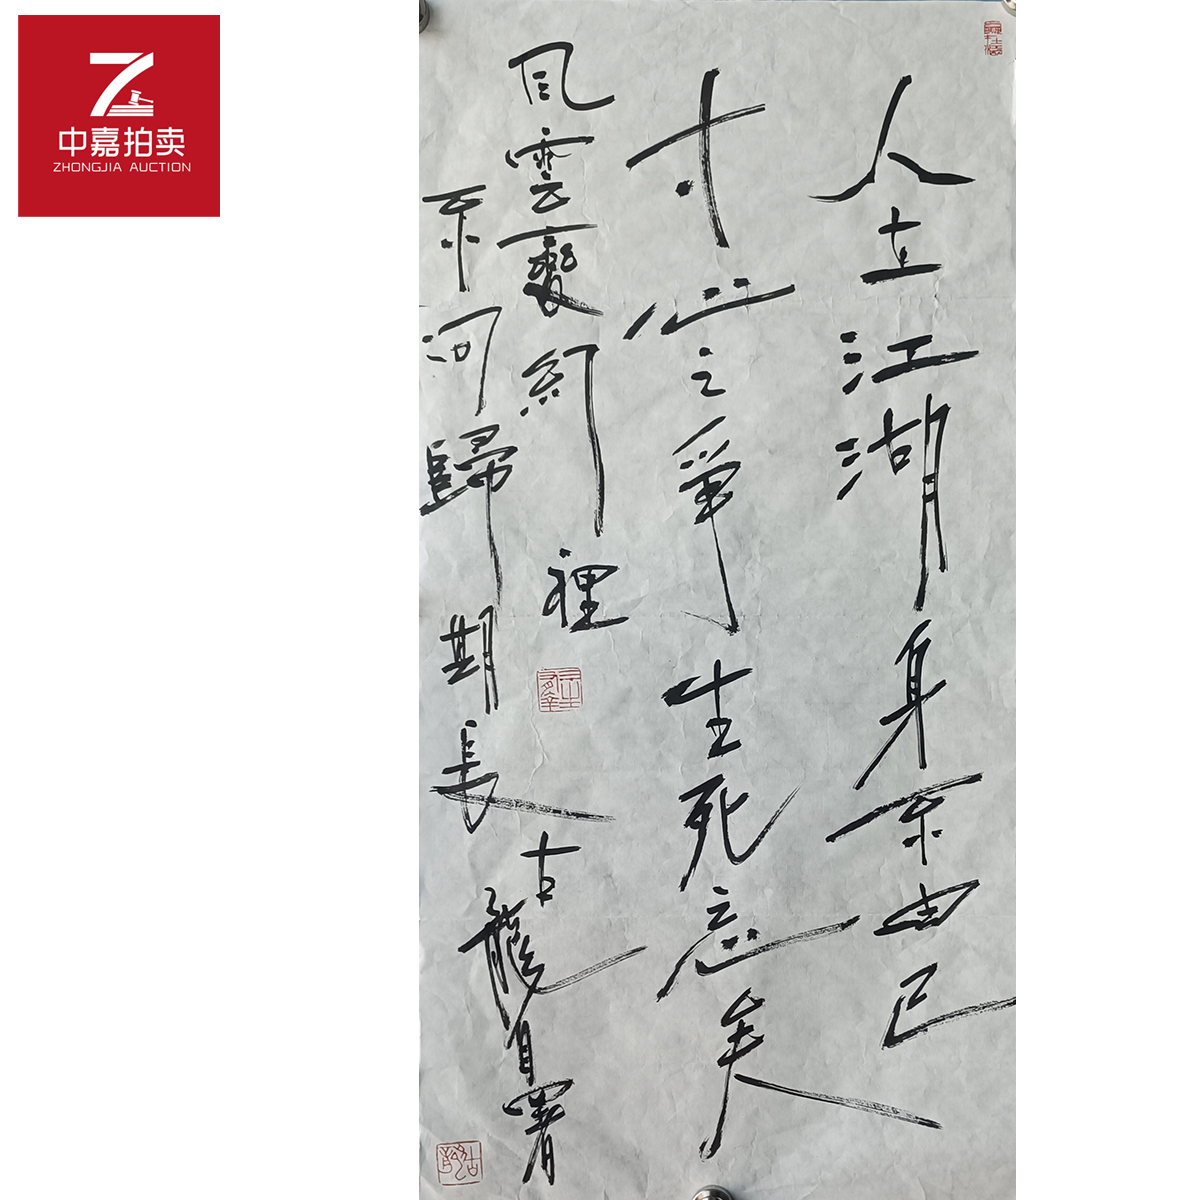 中嘉拍卖
ZHONGJIA AUCTION
人在江湖身不由己
寸心之爭生死忘矣
風雲變幻裡
不問歸期長
古龍自署